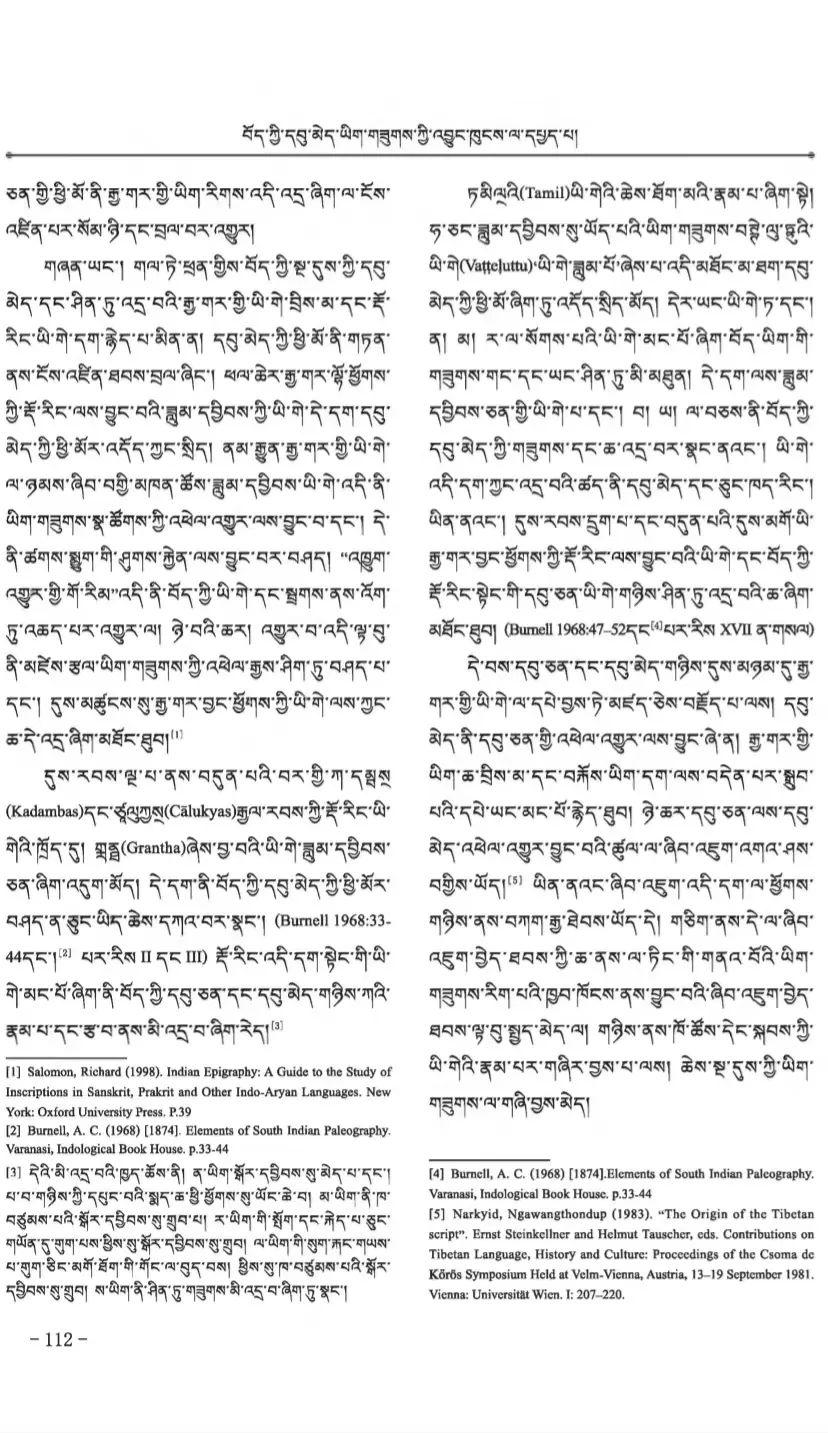 བོད་ཀྱི་དབུ་མེད་ཡིག་གཟུགས་ཀྱི་འབྱུང་ཁུངས་ལ་དཔྱད་པ།
ཅན་གྱི་ཕྱི་མོ་ནི་རྒྱ་གར་གྱི་ཡིག་རིགས་འདི་འདྲ་ཞིག་ལ་ངོས་
འཛིན་པར་སོམ་ཉི་དང་བྲལ་བར་འགྱུར།
གཞན་ཡང་། གལ་ཏེ་ཕྲན་གྱིས་བོད་ཀྱི་སྔ་དུས་ཀྱི་དབུ་
མེད་དང་ཤིན་ཏུ་འདྲ་བའི་རྒྱ་གར་གྱི་ཡི་གེ་བྲིས་མ་དང་རྡོ་
རིང་ཡི་གེ་དག་རྙེད་པ་མིན་ན། དབུ་མེད་ཀྱི་ཕྱི་མོ་ནི་གཏན་
ནས་ངོས་འཛིན་ཐབས་བྲལ་ཞིང་། ཕལ་ཆེར་རྒྱ་གར་ལྷོ་ཕྱོགས་
ཀྱི་རྡོ་རིང་ལས་བྱུང་བའི་ཟླུམ་དབྱིབས་ཀྱི་ཡི་གེ་དེ་དག་དབུ་
མེད་ཀྱི་ཕྱི་མོར་འདོད་ཀྱང་སྲིད། ནམ་རྒྱུན་རྒྱ་གར་གྱི་ཡི་གེ་
ལ་ཉམས་ཞིབ་བགྱི་མཁན་ཚོས་ཟླུམ་དབྱིབས་ཡི་གེ་འདི་ནི་
ཡིག་གཟུགས་སྣ་ཚོགས་ཀྱི་འཕེལ་འགྱུར་ལས་བྱུང་བ་དང་། དེ་
ནི་ཚགས་སྨྱུག་གི་ཤུགས་རྐྱེན་ལས་བྱུང་བར་བཤད། “འཁྱུག་
འགྱུར་གྱི་གོ་རིམ”འདི་ནི་བོད་ཀྱི་ཡི་གེ་དང་སྦྲགས་ནས་འོག་
ཏུ་འཆད་པར་འགྱུར་ལ། ཉེ་བའི་ཆར། འགྱུར་བ་འདི་ལྟ་བུ་
ནི་མཛེས་རྩལ་ཡིག་གཟུགས་ཀྱི་འཕེལ་རྒྱས་ཤིག་ཏུ་བཤད་པ་
དང་། དུས་མཚུངས་སུ་རྒྱ་གར་བྱང་ཕྱོགས་ཀྱི་ཡི་གེ་ལས་ཀྱང་
ཆ་དེ་འདྲ་ཞིག་མཐོང་ཐུབ།[1]
དུས་རབས་ལྔ་པ་ནས་བདུན་པའི་བར་གྱི་ཀ་དམྦས྄
(Kadambas)དང་(Cālukyas)རྒྱལ་རབས་ཀྱི་རྡོ་རིང་ཡི་
གེའི་ཁྲོད་དུ། གྲནྠ(Grantha)ཞེས་བྱ་བའི་ཡི་གེ་ཟླུམ་དབྱིབས་
ཅན་ཞིག་འདུག་མོད། དེ་དག་ནི་བོད་ཀྱི་དབུ་མེད་ཀྱི་ཕྱི་མོར་
བཤད་ན་ཅུང་ཡིད་ཆེས་དཀའ་བར་སྣང་། (Burnell 1968:33-
44དང་།[2] པར་རིས II དང III) རྡོ་རིང་འདི་དག་སྟེང་གི་ཡི་
གེ་མང་པོ་ཞིག་ནི་བོད་ཀྱི་དབུ་ཅན་དང་དབུ་མེད་གཉིས་ཀའི་
རྣམ་པ་དང་རྩ་བ་ནས་མི་འདྲ་བ་ཞིག་རེད།[3]
[1] Salomon, Richard (1998). Indian Epigraphy: A Guide to the Study of
Inscriptions in Sanskrit, Prakrit and Other Indo-Aryan Languages. New
York: Oxford University Press. P.39
[2] Burnell, A. C. (1968) [1874]. Elements of South Indian Paleography.
Varanasi, Indological Book House. p.33-44
[3] དེའི་མི་འདྲ་བའི་ཁྱད་ཆོས་ནི། ན་ཡིག་སྒོར་དབྱིབས་སུ་མེད་པ་དང་།
པ་བ་གཉིས་ཀྱི་དཔུང་བའི་སྨད་ཆ་ཕྱི་ཕྱོགས་སུ་ཡོང་ཆེ་བ། མ་ཡིག་ནི་ཁ་
བཙུམས་པའི་སྒོར་དབྱིབས་སུ་གྲུབ་པ། ར་ཡིག་གི་སྤོག་དང་རྐེད་པ་ཅུང་
གཡོན་དུ་གུག་པས་ཕྱིས་སུ་སྒོར་དབྱིབས་སུ་གྲུབ། ལ་ཡིག་གི་སུག་རྐང་གཡས་
པ་གུག་ཅིང་མགོ་ཐོག་གི་གོང་ལ་བུད་བས། ཕྱིས་སུ་ཁ་བཙུམས་པའི་སྒོར་
དབྱིབས་སུ་གྲུབ། ས་ཡིག་ནི་ཤིན་ཏུ་གཟུགས་མི་འདྲ་བ་ཞིག་ཏུ་སྣང་།
ཏ་མིལྲའི(Tamil)ཡི་གེའི་ཆེས་ཐོག་མའི་རྣམ་པ་ཞིག་སྟེ།
ཧ་ཅང་ཟླུམ་དབྱིབས་སུ་ཡོད་པའི་ཡིག་གཟུགས་
ཡི་གེ(Vaṭṭeḻuttu)ཡི་གེ་ཟླུམ་པོ་ཞེས་པ་འདི་མཐོང་མ་ཐག་དབུ་
མེད་ཀྱི་ཕྱི་མོ་ཞིག་ཏུ་འདོད་སྲིད་མོད། དེར་ཡང་ཡི་གེ་ཏ་དང་།
ན། མ། ར་ལ་སོགས་པའི་ཡི་གེ་མང་པོ་ཞིག་བོད་ཡིག་གི་
གཟུགས་གང་དང་ཡང་ཤིན་ཏུ་མི་མཐུན། དེ་དག་ལས་ཟླུམ་
དབྱིབས་ཅན་གྱི་ཡི་གེ་པ་དང་། བ། ཡ། ལ་བཅས་ནི་བོད་ཀྱི་
དབུ་མེད་ཀྱི་གཟུགས་དང་ཆ་འདྲ་བར་སྣང་ནའང་། ཡི་གེ་
འདི་དག་ཀྱང་འདྲ་བའི་ཚད་ནི་དབུ་མེད་དང་ཅུང་ཁད་རིང་།
ཡིན་ནའང་། དུས་རབས་དྲུག་པ་དང་བདུན་པའི་དུས་མགོ་ཡི་
རྒྱ་གར་བྱང་ཕྱོགས་ཀྱི་རྡོ་རིང་ལས་བྱུང་བའི་ཡི་གེ་དང་བོད་ཀྱི་
རྡོ་རིང་སྟེང་གི་དབུ་ཅན་ཡི་གེ་གཉིས་ཤིན་ཏུ་འདྲ་བའི་ཆ་ཞིག་
མཐོང་ཐུབ། (Burnell 1968:47–52དང[4]པར་རིས XVII ན་གསལ)
དེ་བས་དབུ་ཅན་དང་དབུ་མེད་གཉིས་དུས་མཉམ་དུ་རྒྱ་
གར་གྱི་ཡི་གེ་ལ་དཔེ་བྱས་ཏེ་མཛད་ཅེས་བརྗོད་པ་ལས། དབུ་
མེད་ནི་དབུ་ཅན་གྱི་འཕེལ་འགྱུར་ལས་བྱུང་ཞེ་ན། རྒྱ་གར་གྱི་
ཡིག་ཆ་བྲིས་མ་དང་བརྐོས་ཡིག་དག་ལས་བདེན་པར་སྒྲུབ་
པའི་དཔེ་ཡང་མང་པོ་རྙེད་ཐུབ། ཉེ་ཆར་དབུ་ཅན་ལས་དབུ་
མེད་འཕེལ་འགྱུར་བྱུང་བའི་ཚུལ་ལ་ཞིབ་འཇུག་འགའ་ཤས་
བགྱིས་ཡོད།[5] ཡིན་ནའང་ཞིབ་འཇུག་འདི་དག་ལ་ཕྱོགས་
གཉིས་ནས་བཀག་རྒྱ་ཐེབས་ཡོད་དེ། གཅིག་ནས་དེ་ལ་ཞིབ་
འཇུག་བྱེད་ཐབས་ཀྱི་ཆ་ནས་ལ་ཏིང་གི་གནའ་བོའི་ཡིག་
གཟུགས་རིག་པའི་ཁྱབ་ཁོངས་ནས་བྱུང་བའི་ཞིབ་འཇུག་བྱེད་
ཐབས་ལྟ་བུ་སྤྱད་མེད་ལ། གཉིས་ནས་ཁོ་ཚོས་དེང་སྐབས་ཀྱི་
ཡི་གེའི་རྣམ་པར་གཞིར་བྱས་པ་ལས། ཆེས་སྔ་དུས་ཀྱི་ཡིག་
གཟུགས་ལ་གཞི་བྱས་མེད།
[4] Burnell, A. C. (1968) [1874].Elements of South Indian Paleography.
Varanasi, Indological Book House. p.33-44
[5] Narkyid, Ngawangthondup (1983). “The Origin of the Tibetan
script”. Ernst Steinkellner and Helmut Tauscher, eds. Contributions on
Tibetan Language, History and Culture: Proceedings of the Csoma de
Kőrös Symposium Held at Velm-Vienna, Austria, 13–19 September 1981.
Vienna: Universität Wien. I: 207–220.
– 112 –